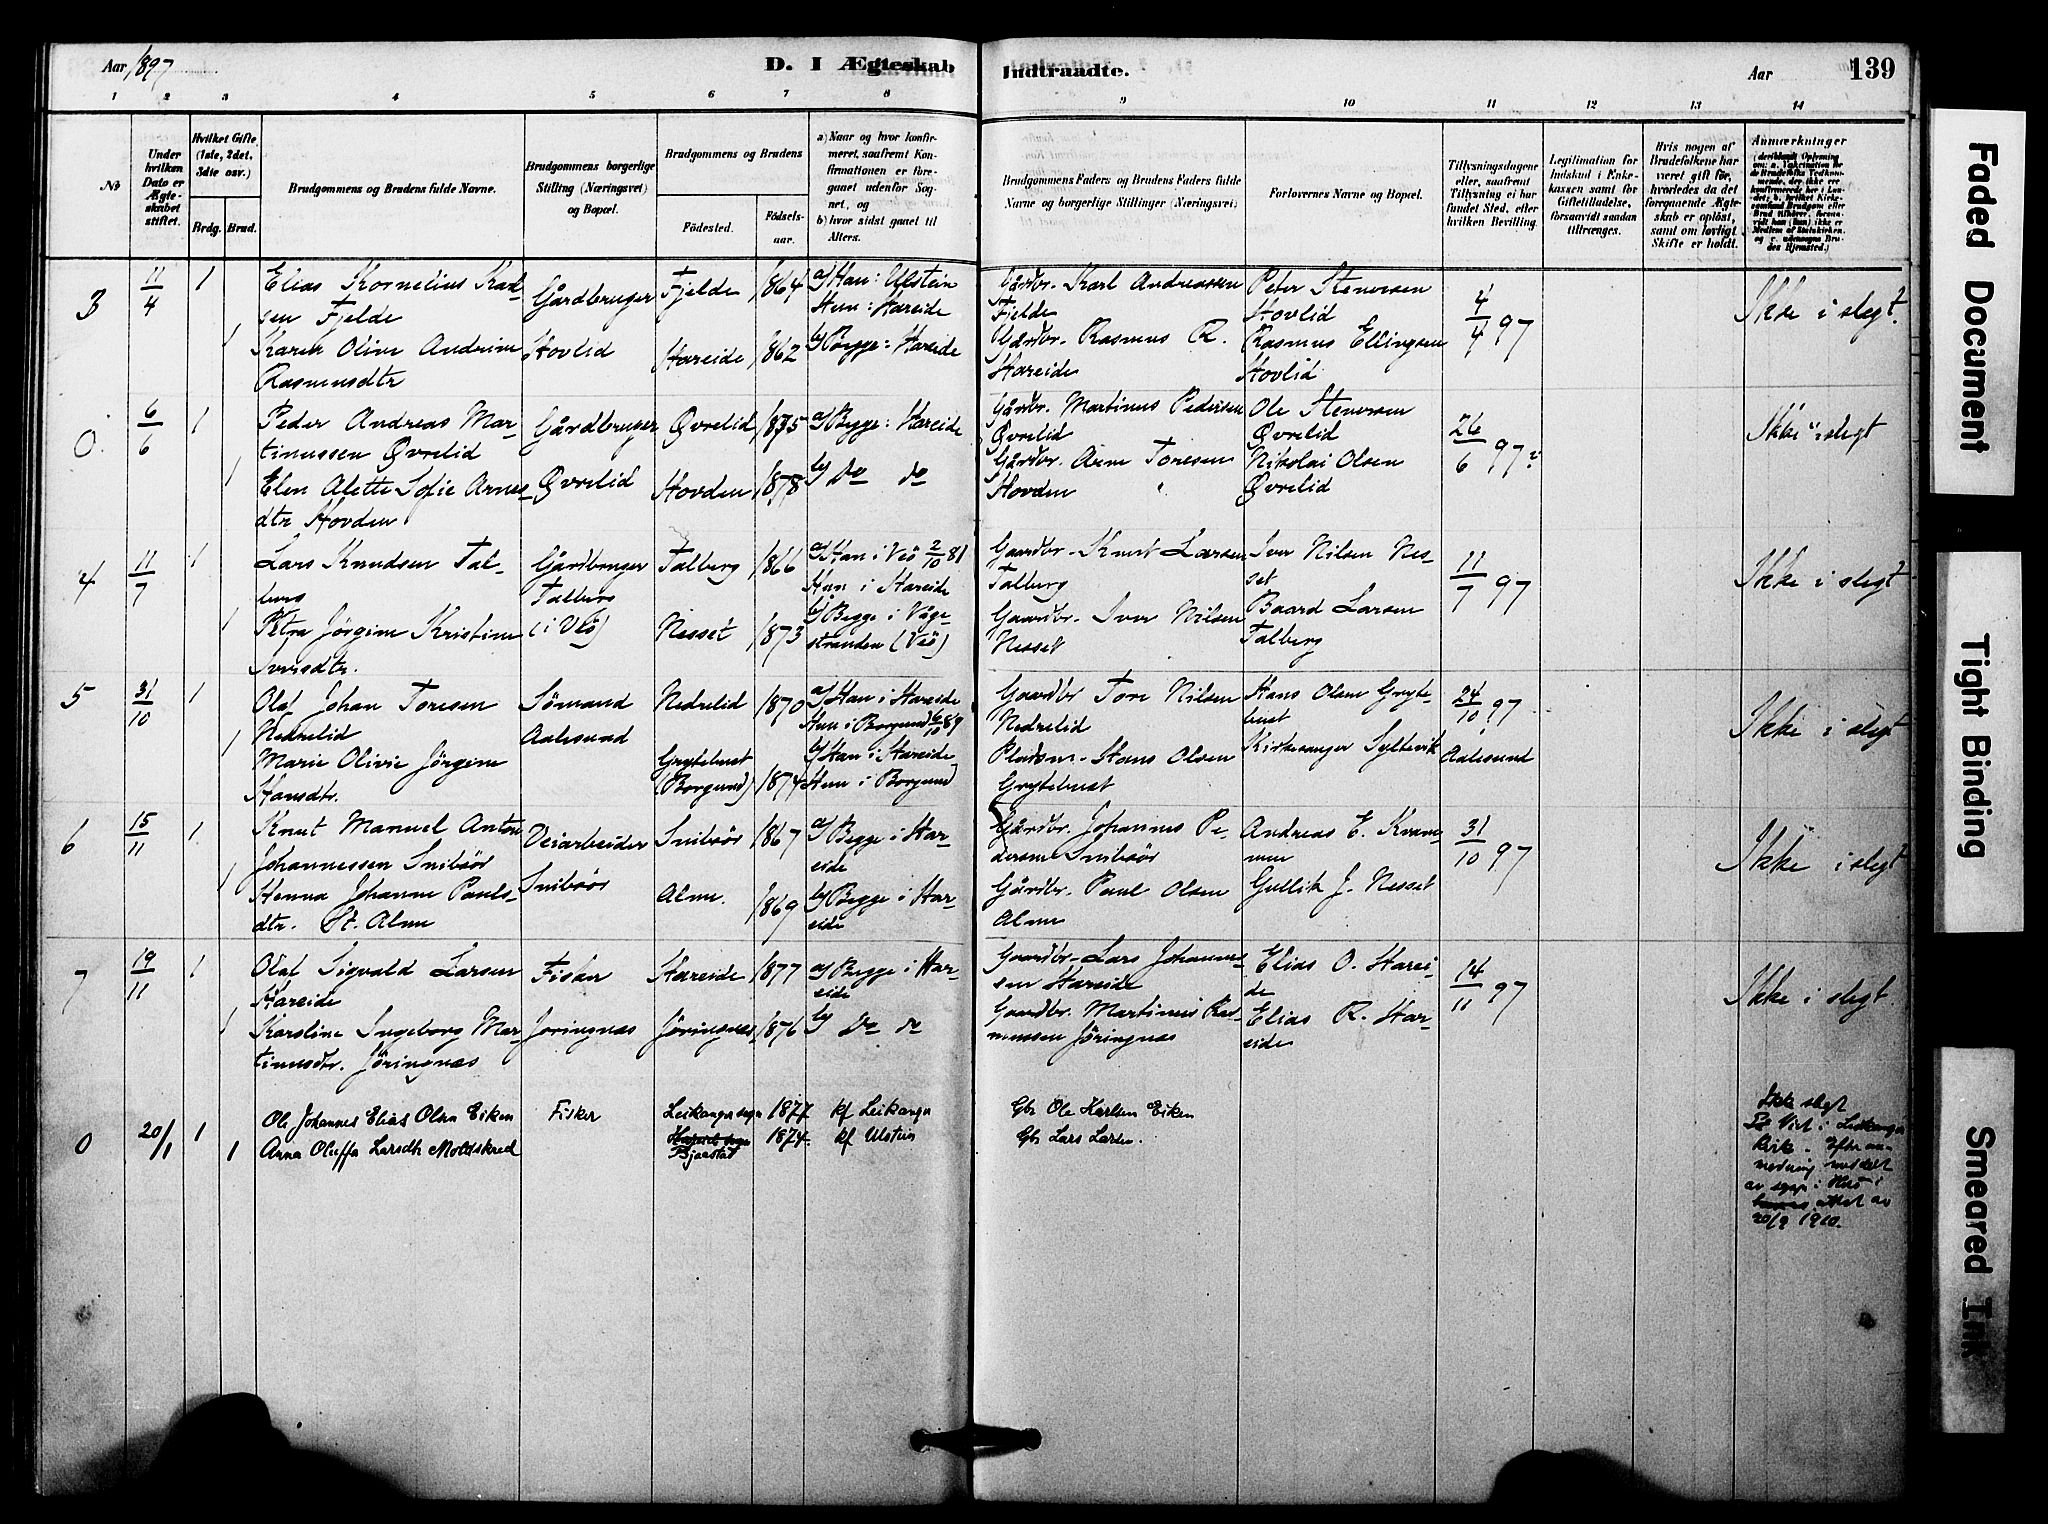 Aar 1897
D. I Ægteskab Indtraadte.
Aar 139
1 2 3 4 5 6 7 8 9 10 11 12 13 14
No
Under hvilken Dato er Ægteskabet stiftet.
Hvilket Gifte (1ste, 2det, 3dte osv.)
Brdg. Brud.
Brudgommens og Brudens fulde Navne.
Brudgommens borgerlige Stilling (Næringsvei) og Bopæl.
Brudgommens og Brudens
Fødested.
Fødselsaar.
a) Naar og hvor konfirmeret, saafremt Konfirmationen er foregaaet udenfor Sognet, og
b) hvor sidst gaaet til Alters.
Brudgommens Faders og Brudens Faders fulde Navne og borgerlige Stillinger (Næringsvei)
Forlovernes Navne og Bopæl.
Tillysningsdagene eller, saafremt Tillysning ei har fundet Sted, efter hvilken Bevilling.
Legitimation for Indskud i Enkekassen samt for Giftetilladelse, forsaavidt saadan tiltrænges.
Hvis nogen af Brudefolkene har været gift før, hvorledes da det foregaaende Ægteskab er opløst, samt om lovligt Skifte er holdt.
Anmærkninger
3 11/4 1 Elias Kornelius Karlsen Fjelde Gårdbruger Fjelde 1864 a) Han: Ulstein Gårdbr. Karl Andreassen Fjelde Peter Stenersen Hovlid 4/4 97 Ikke i slegt.
1 Karen Olive Andrine Rasmusdtr Hovlid Hareide 1862 Hun: Hareide b) Begge: Hareide Gårdbr. Rasmus R. Hareide Rasmus Ellingsen Hovlid
0. 6/6 1 Peder Andreas Martinussen Øvrelid Gårdbruger Øvrelid 1875 a) Begge: Hareide Gårdbr. Martinus Pedersen Øvrelid Ole Stenersen Øvrelid 26/6 97? Ikke i slegt
1 Elen Alette Sofie Arnesdtr Hovden Øvrelid Hovden 1878 b) do do Gårdbr. Arne Toresen Hovden Nikolai Olsen Øvrelid
4 11/7 1 Lars Knudsen Talberg Gårdbruger Talberg 1866 a) Han i Veö 2/10 81 Gaardbr. Knut Larsen Talberg Iver Nilsen Nesset 11/7 97 Ikke i slegt
1 Petra Jörgine Kristine Iversdtr. Talberg (i Veö) Nesset 1873 Hun i Hareide b) Begge i Vågestranden (Veö) Gaardbr. Iver Nilsen Nesset Baard Larsen Talberg
5 31/10 1 Olaf Johan Toresen Nedrelid Sömand Nedrelid 1870 a) Han i Hareide Gaardbr Tore Nilsen Nedrelid Hans Olsen Grytebust 24/10 97 Ikke i slegt
1 Marie Olivie Jörgine Hansdtr. Aalesund Grytebust (Borgund) 1874 Hun i Borgund 6/10 89 b) Han i Hareide Hun i Borgund Pladsm. Hans Olsen Grytebust Kirkesanger Syltevik Aalesund
6 15/11 1. Knut Manuel Anton Johannessen Snibsör Veiarbeider Snibsör 1867 a) Begge i Hareide Gårdbr. Johannes Pedersen Snibsör Andreas E. Kvammen 31/10 97 Ikke i slegt
1 Henna Johanne Paulsdtr. St. Alme Snibsör Alme. 1869 b) Begge i Hareide Gårdbr. Paul Olsen Alme Gullik J. Nesset
7 19/11 1 Olaf Sigvald Larsen Hareide Fisker Hareide 1877 a) Begge i Hareide Gaardbr. Lars Johannessen Hareide Elias O. Hareide 14/11 97 Ikke i slegt
1 Karoline Ingeborg Martinusdtr. Jöringnæs Joringnæs Jöringnæs 1876 b) do do Gaardbr. Martinus Rasmussen Jöringnæs Elias R. Hareide
0 20/1 1 Ole Johannes Elias Olsen Eiken Fisker Leikanger sogn 1877 kf Leikanger Gbr Ole Karlsen Eiken Ikke slegt
1 Anna Oluffa Larsdtr Moldskred Bjaastad 1874. kf Ulstein Gbr Lars Larsen.
20/9 1910.
Faded Document
Tight Binding
Smeared Ink